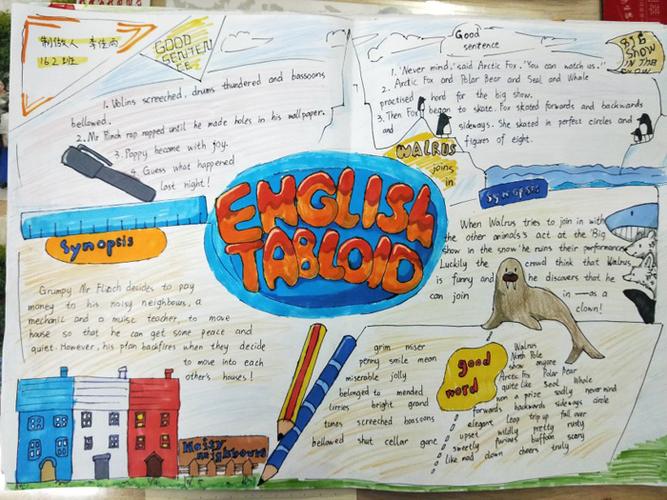 制做人 李佳雨
162班
GOOD
SENTEN
CE
1. Volins screeched, drums thundered and bassoons
bellowed.
2. Mr Flinch rap rapped until he made holes in his wallpaper.
3. Poppy became with joy.
4. Guess what happened
last night!
Good
sentence
BIG
SHOW
IN THE
SNOW
1. 'Never mind,' said Arctic Fox. 'You can watch us.'
2. Arctic Fox and Polar Bear and Seal and Whale
practised hard for the big show.
3. Then Fox began to skate. Fox skated forwards and backwards
and sideways. She skated in perfect circles and
figures of eight.
WALRUS
joins
in
ENGLISH
TABLOID
Synopsis
Grumpy Mr Flinch decides to pay
money to his noisy neighbours, a
mechanic and a music teacher, to move
house so that he can get some peace and
quiet. However, his plan backfires when they decide
to move into each
other's houses!
Noisy
neighbours
Synopsis
When Walrus tries to join in with
the other animals's act at the 'Big
show in the snow' he ruins their performance
Luckily the crowd think that Walrus
is funny and he discovers that he
can join in — as a
clown!
good
word
grim miser
penny smile mean
miserable jolly
belonged to mended
bright grand
tunes screeched bassoons
bellowed shut cellar gave
Walrus
North Pole
show anyone
Arctic Fox Polar Bear
quite like Seal Whale
won a prize sadly never mind
forwards backwards sideways circle
elegant leap trip up fall over
upset wildly pretty nasty
sweetly furious buffoon scary
like mad clown cheers truly